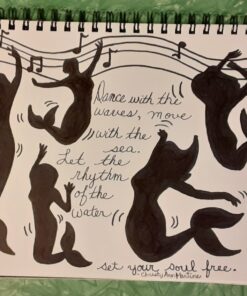 Dance with the
waves, move
with the
sea.
Let the
rhythm
of the
water
set your soul free.
-Christy Ann Martine